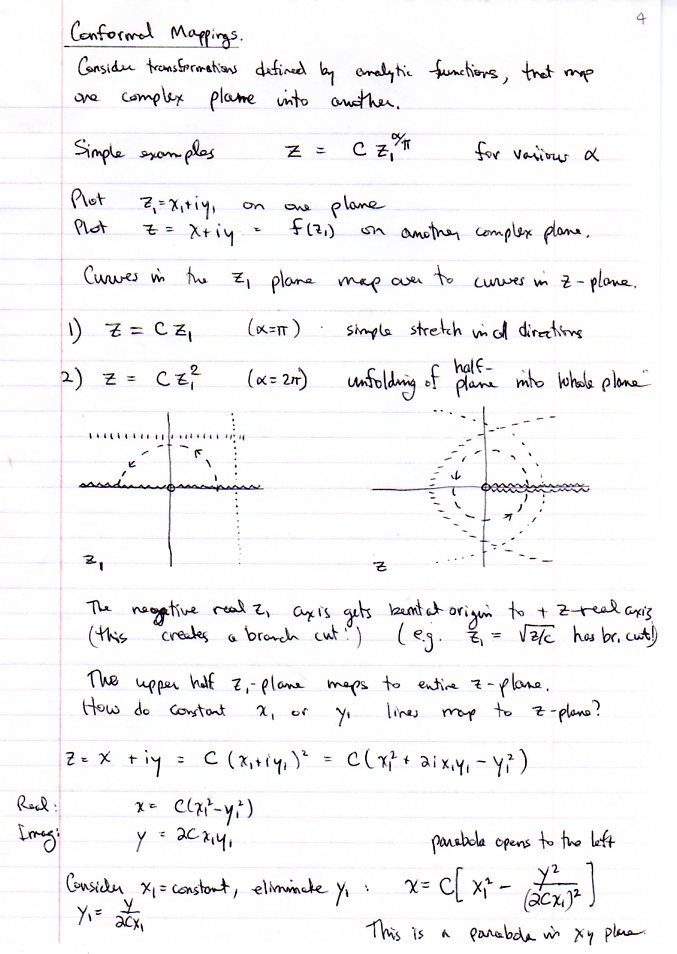 4
Conformal Mappings.
Consider transformations defined by analytic functions, that map
one complex plane into another.
Simple examples z = C z₁^(α/π) for various α
Plot z₁ = x₁+iy₁ on one plane
Plot z = x+iy = f(z₁) on another complex plane.
Curves in the z₁ plane map over to curves in z-plane.
1) z = C z₁ (α=π) simple stretch in all directions
2) z = C z₁² (α=2π) unfolding of half-plane into whole plane"
z₁
z
The negative real z₁ axis gets bent at origin to + z-real axis
(this creates a branch cut!) (e.g. z₁ = √z/c has br. cut!)
The upper half z₁-plane maps to entire z-plane.
How do constant x₁ or y₁ lines map to z-plane?
z = x + iy = C (x₁+iy₁)² = C(x₁² + 2ix₁y₁ - y₁²)
Real: x = C(x₁²-y₁²)
Imag: y = 2Cx₁y₁
parabola opens to the left
Consider x₁ = constant, eliminate y₁ : x = C[x₁² - y²/(2Cx₁)²]
y₁ = y/2Cx₁
This is a parabola in xy plane.